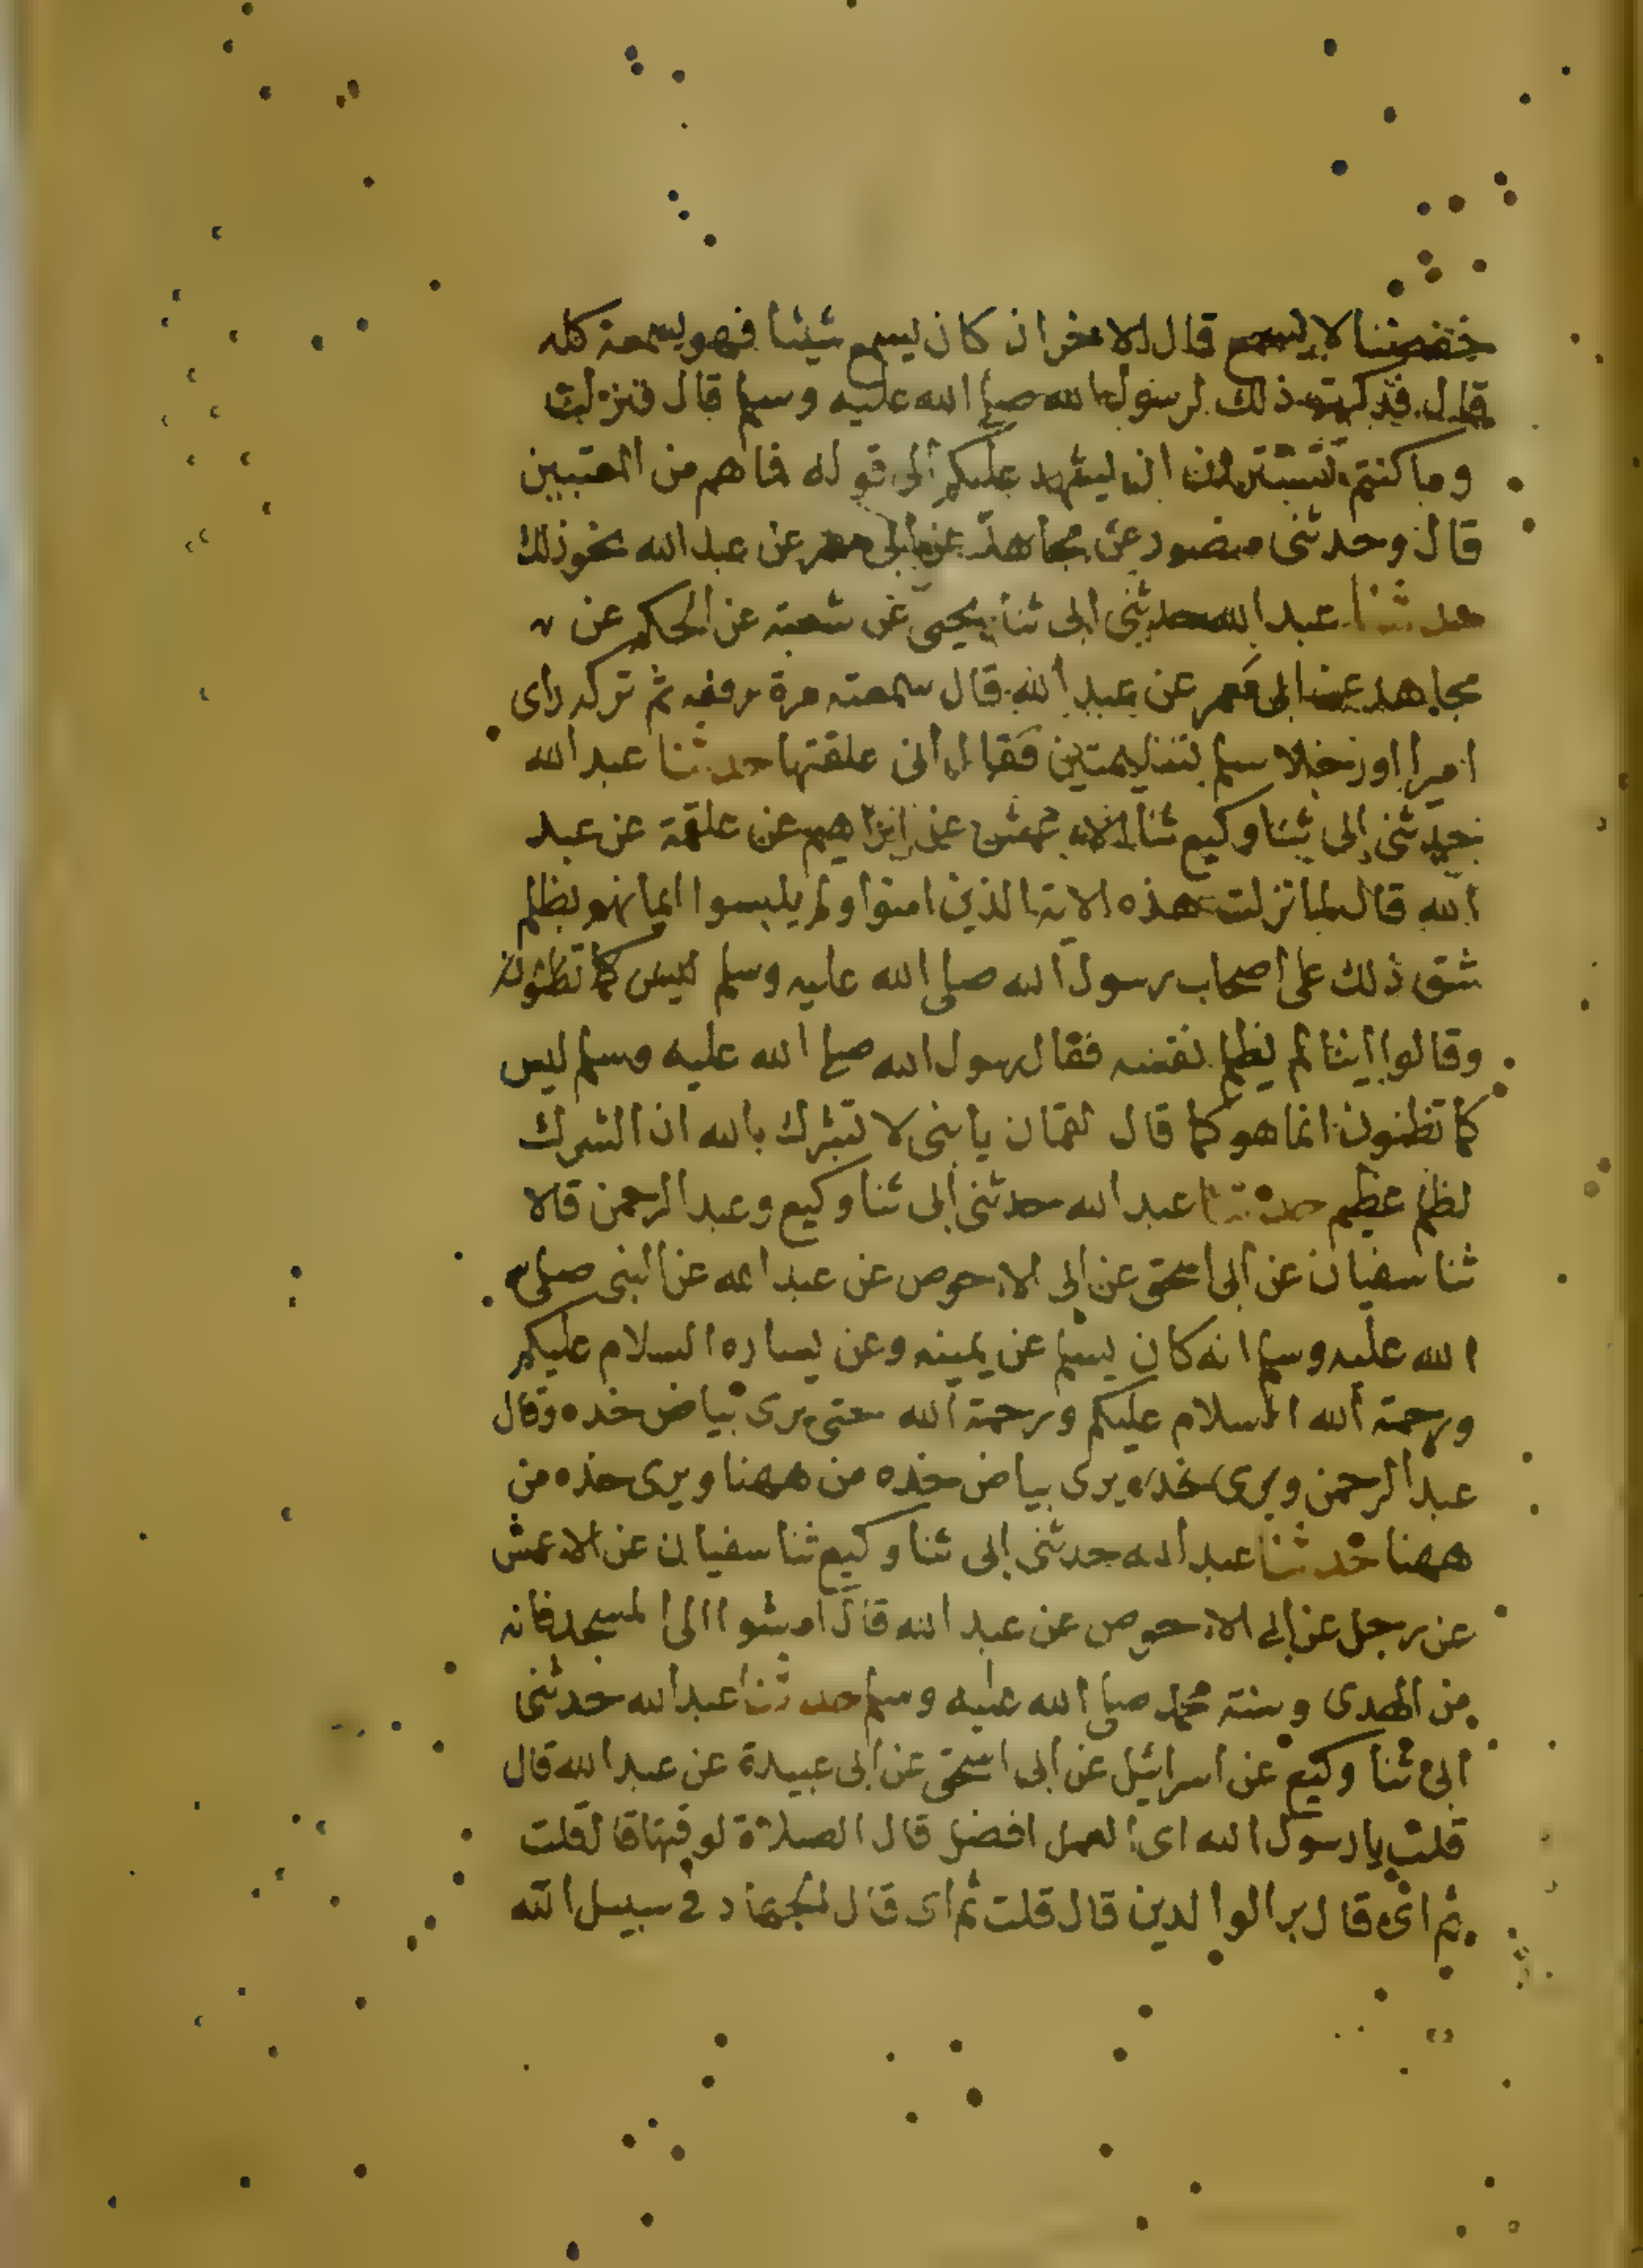 خفضتنا لا يسمع قال الاخر ان كان يسمع شيئا فهو يسمعه كله
قال فذكرت ذلك لرسول الله صلى الله عليه وسلم قال فنزلت
وما كنتم تستترون ان يشهد عليكم الى قوله فما هم من المعتبين
قال وحدثنى منصور عن مجاهد عن ابى معمر عن عبد الله نحو ذلك
حدثنا عبد الله حدثنى ابى ثنا يحيى عن شعبة عن الحكم عن
مجاهد عن ابى معمر عن عبد الله قال سمعته مرة رفعه ثم تركه راى
اميرا او رجلا سلم بتسليمتين فقال انى علقتها حدثنا عبد الله
حدثنى ابى ثنا وكيع ثنا الاعمش عن ابراهيم عن علقمة عن عبد
الله قال لما نزلت هذه الاية الذين امنوا ولم يلبسوا ايمانهم بظلم
شق ذلك على اصحاب رسول الله صلى الله عليه وسلم ليس كما تظنون
وقالوا اينا لم يظلم نفسه فقال رسول الله صلى الله عليه وسلم ليس
كما تظنون انما هو كما قال لقمان يا بنى لا تشرك بالله ان الشرك
لظلم عظيم حدثنا عبد الله حدثنى ابى ثنا وكيع وعبد الرحمن قالا
ثنا سفيان عن ابى اسحق عن ابى الاحوص عن عبد الله عن النبى صلى
الله عليه وسلم انه كان يسلم عن يمينه وعن يساره السلام عليكم
ورحمة الله السلام عليكم ورحمة الله حتى يرى بياض خده وقال
عبد الرحمن ويرى خده ويرى بياض خده من ههنا ويرى خده من
ههنا حدثنا عبد الله حدثنى ابى ثنا وكيع ثنا سفيان عن الاعمش
عن رجل عن ابى الاحوص عن عبد الله قال امشوا الى المسجد فانه
من الهدى وسنة محمد صلى الله عليه وسلم حدثنا عبد الله حدثنى
ابى ثنا وكيع عن اسرائيل عن ابى اسحق عن ابى عبيدة عن عبد الله قال
قلت يا رسول الله اى العمل افضل قال الصلاة لوقتها قال قلت
ثم اى قال بر الوالدين قال قلت ثم اى قال الجهاد فى سبيل الله